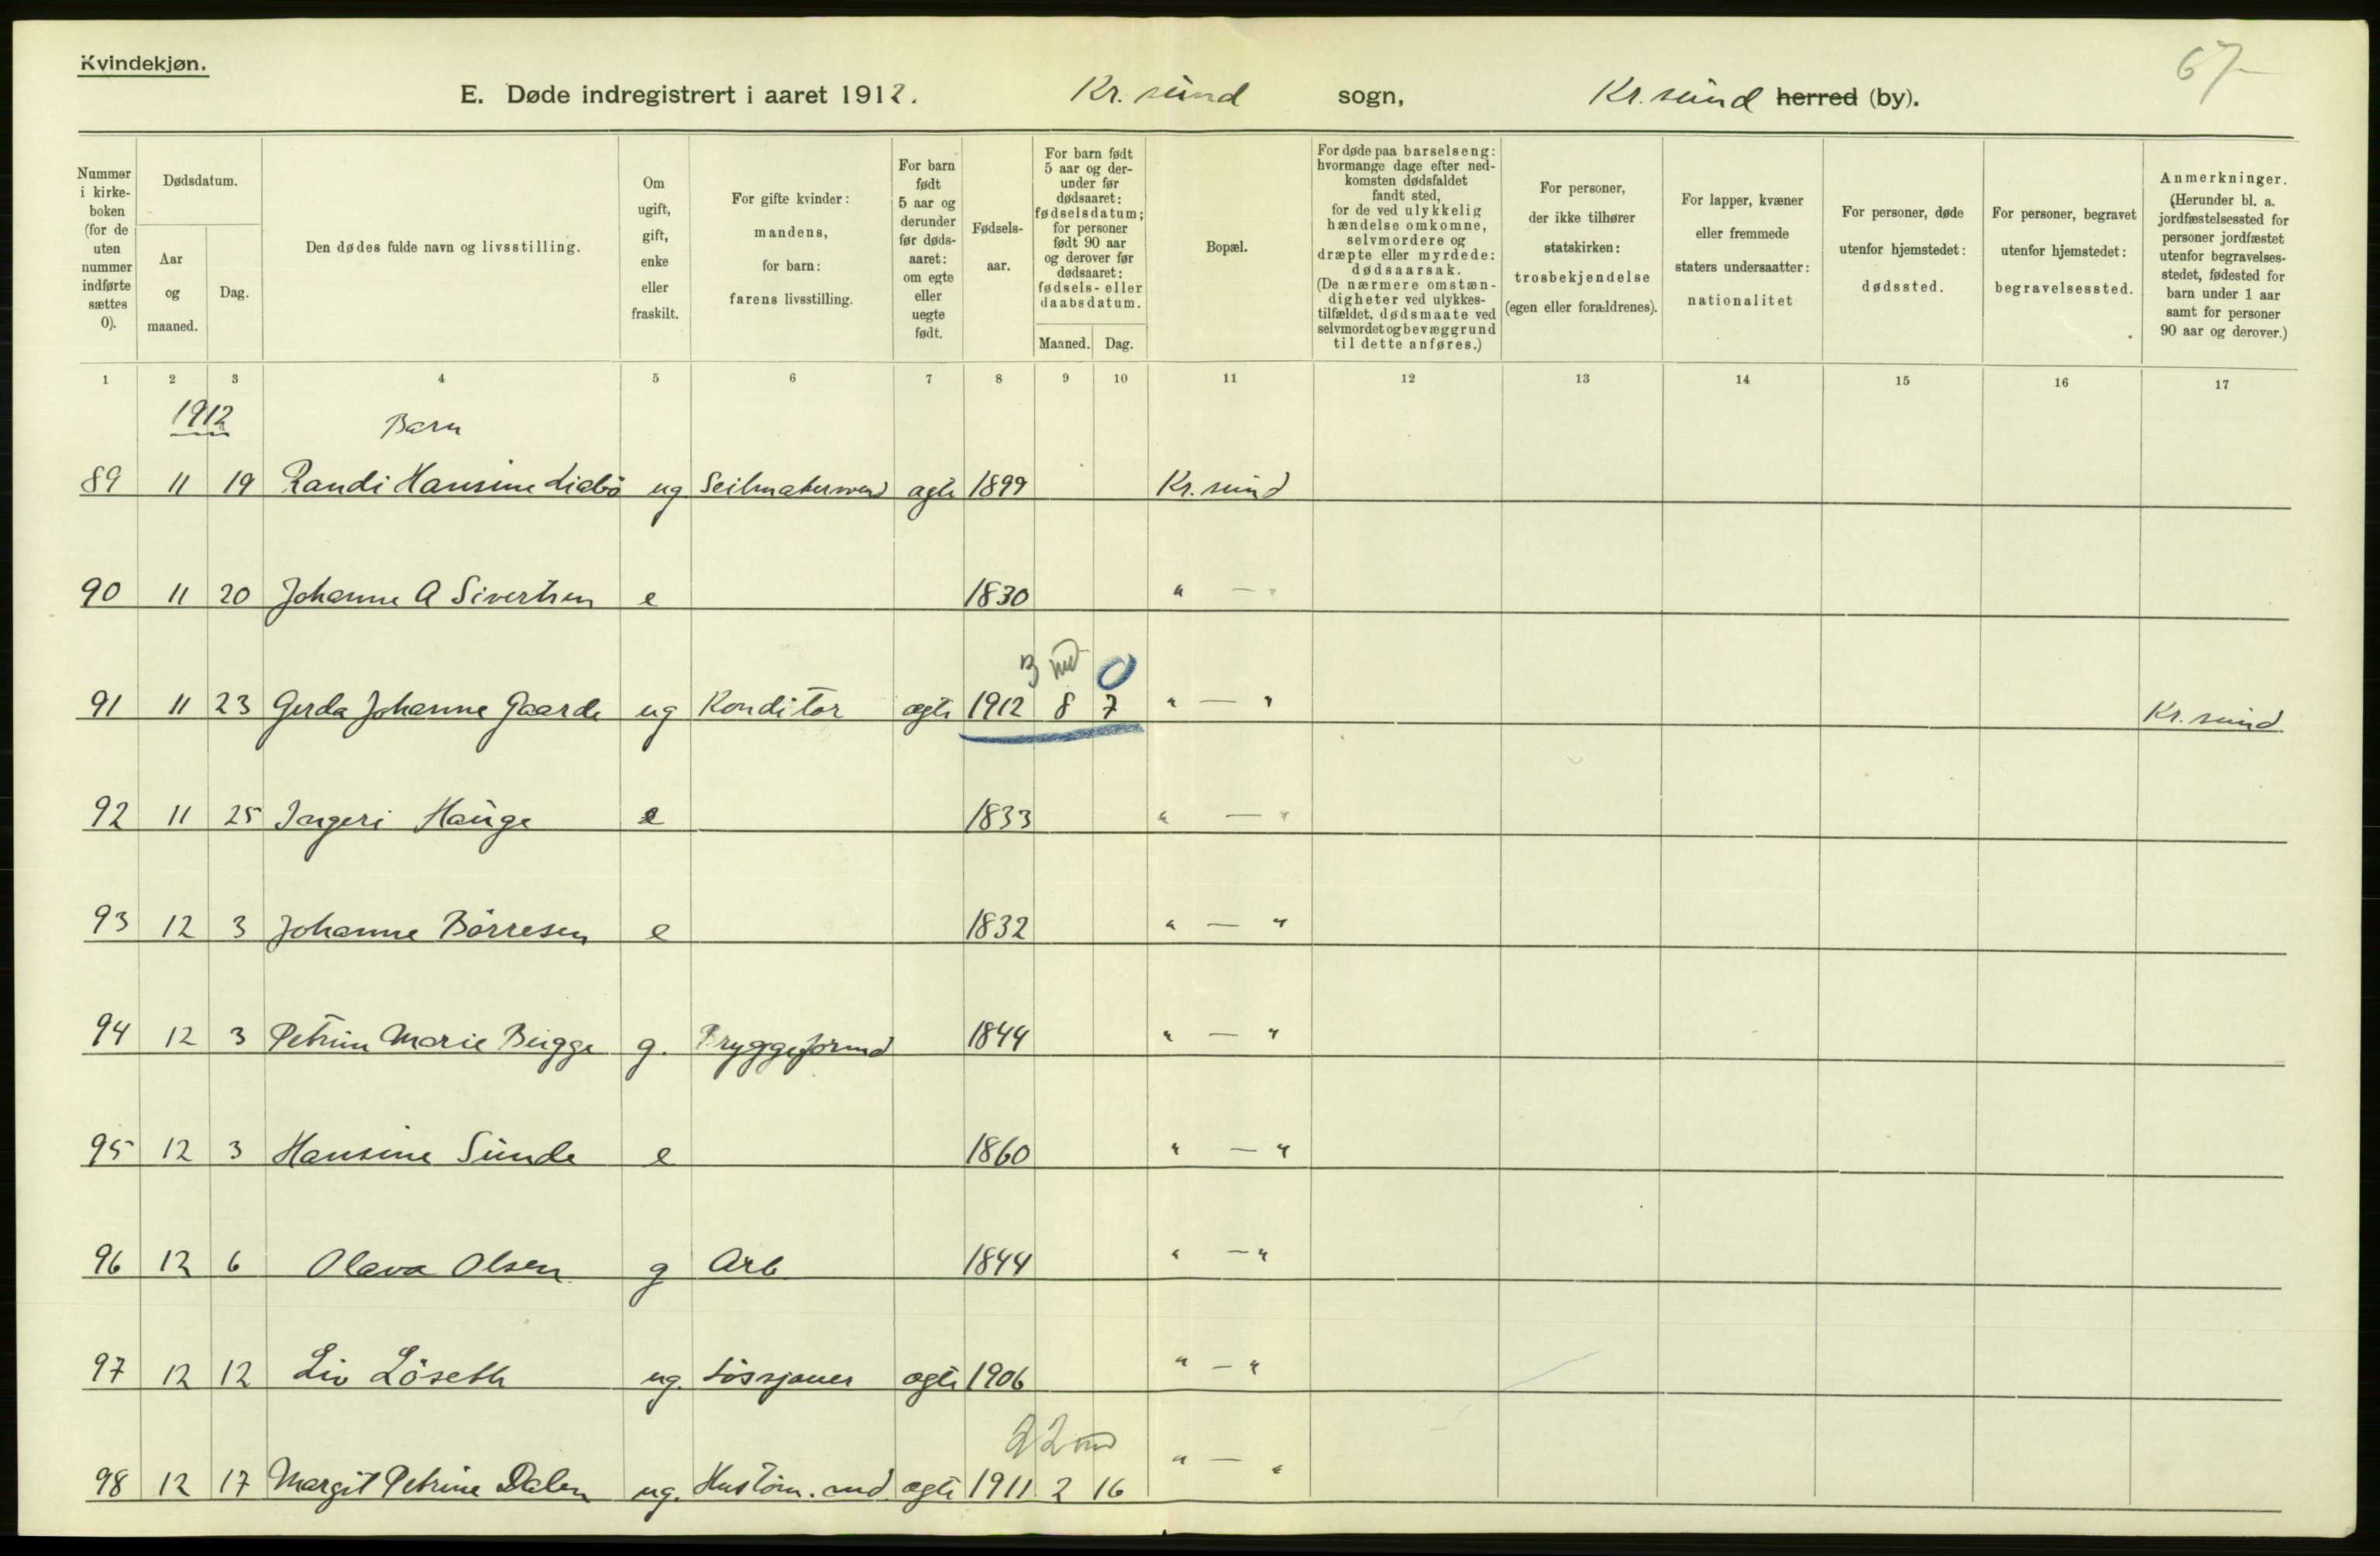 Kvindekjøn.
67
E. Døde indregistrert i aaret 1912. Kr. sund sogn, Kr. sund herred (by).
Nummer i kirkeboken (for de uten nummer indførte sættes 0).
Dødsdatum.
Aar og maaned.
Dag.
Den dødes fulde navn og livsstilling.
Om ugift, gift, enke eller fraskilt.
For gifte kvinder: mandens, for barn: farens livsstilling.
For barn født 5 aar og derunder før dødsaaret: om egte eller uegte født.
Fødselsaar.
For barn født 5 aar og derunder før dødsaaret: fødselsdatum; for personer født 90 aar og derover før dødsaaret: fødsels- eller daabsdatum.
Maaned. Dag.
Bopæl.
For døde paa barselseng: hvormange dage efter nedkomsten dødsfaldet fandt sted, for de ved ulykkelig hændelse omkomne, selvmordere og dræpte eller myrdede: dødsaarsak. (De nærmere omstændigheter ved ulykkestilfældet, dødsmaate ved selvmordet og bevæggrund til dette anføres.)
For personer, der ikke tilhører statskirken: trosbekjendelse (egen eller forældrenes).
For lapper, kvæner eller fremmede staters undersaatter: nationalitet
For personer, døde utenfor hjemstedet: dødssted.
For personer, begravet utenfor hjemstedet: begravelsessted.
Anmerkninger. (Herunder bl. a. jordfæstelsessted for personer jordfæstet utenfor begravelsesstedet, fødested for barn under 1 aar samt for personer 90 aar og derover.)
1 2 3 4 5 6 7 8 9 10 11 12 13 14 15 16 17
1912 Barn
89 11 19 Randi Hansine Liabö ug Seilmakersvend ægte 1899 Kr. sund
90 11 20 Johanne A Sivertsen e 1830 " — "
3 md 0
91 11 23 Gerda Johanne Gaarde ug Konditor ægte 1912 8 7 " — " Kr. sund
92 11 25 Ingeri Hauge e 1833 " — "
93 12 3 Johanne Börresen e 1832 " — "
94 12 3 Petrine Marie Bugge g. Bryggeformd 1844 " — "
95 12 3 Hansine Sunde e 1860 " — "
96 12 6 Olava Olsen g Arb 1844 " — "
97 12 12 Liv Löseth ug. Løssjauer ægte 1906 " — "
22 md
98 12 17 Margit Petrine Dalen ug. Hustöm. md ægte 1911 2 16 " — "